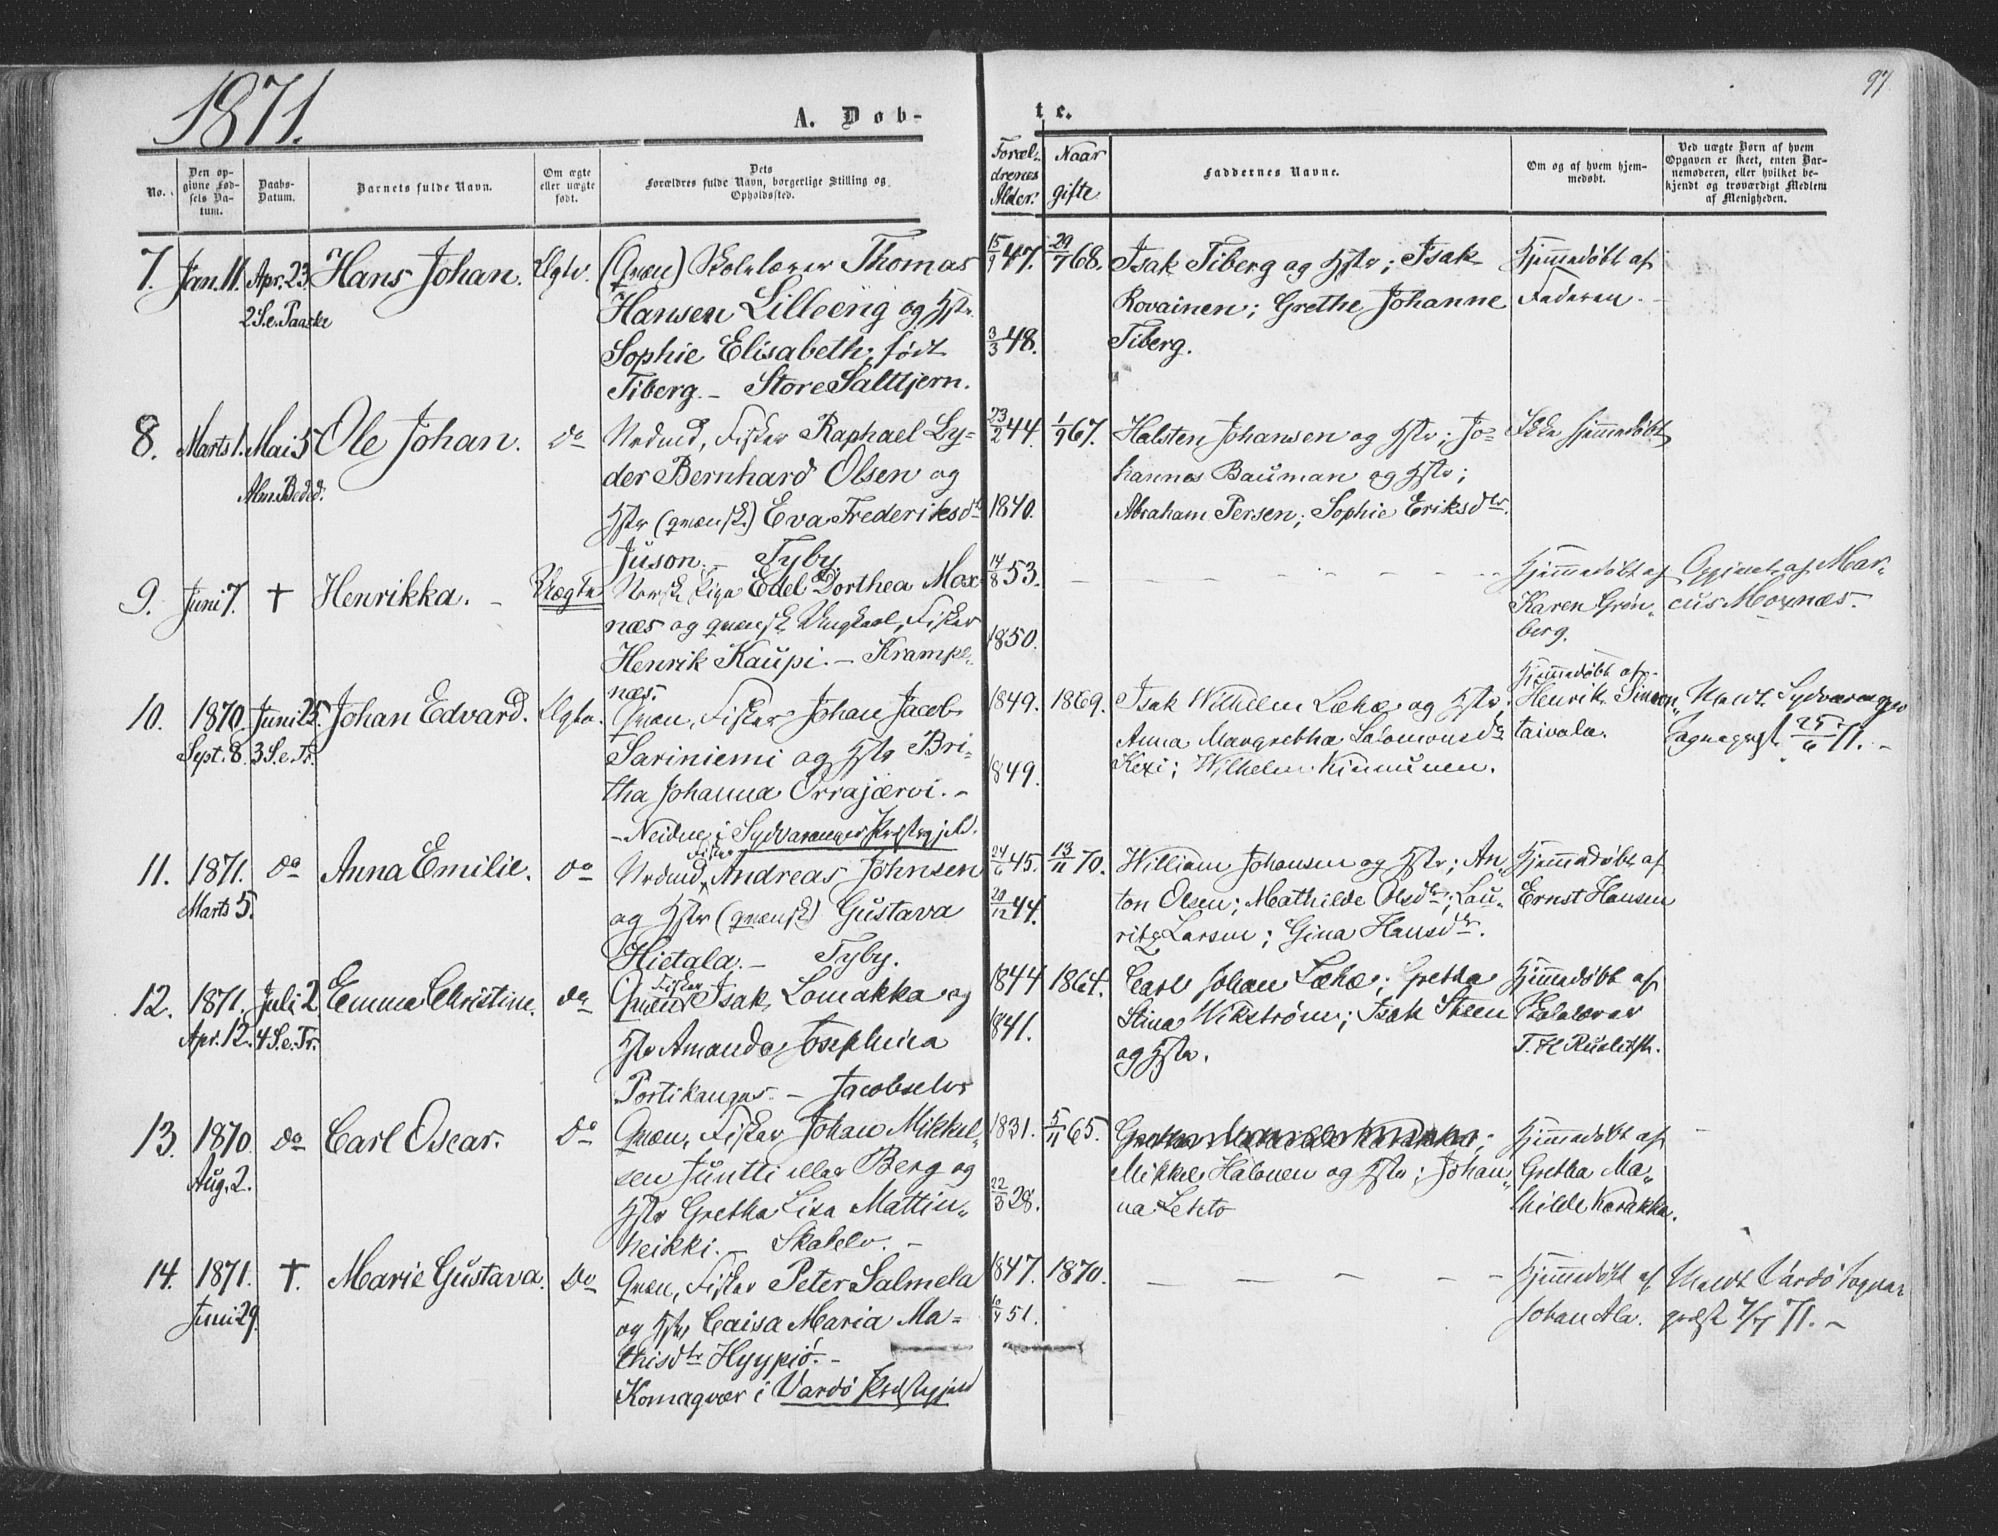 1871.
97
A. Døb-
te.
No.
Den op-
givne Fød-
sels Da-
tum.
Daabs-
Datum.
Barnets fulde Navn.
Om ægte
eller uægte
født.
Dets
Forældres fulde Navn, borgerlige Stilling og
Opholdssted.
Foræl-
drenes
Alder.
Naar
gifte
Faddernes Navne.
Om og af hvem hjem-
medøbt.
Ved uægte Børn af hvem
Opgaven er skeet, enten Bar-
nemoderen, eller hvilket be-
kjendt og troværdigt Medlem
af Menigheden.
7.
Jan. 11.
Apr. 23
2 S. e. Paaske
Hans Johan.
Ægte.
(Qvæn) Skolelærer Thomas
Hansen Lilleeng og Hstr.
Sophie Elisabeth, født
Tiberg. - Store Salttjern.
15/9 47.
3/3 48.
29/7 68.
Isak Tiberg og Hstr; Isak
Rovainen; Grethe Johanne
Tiberg.
Hjemmedøbt af
Faderen.
8.
Marts 1.
Mai 5
Alm. Beded.
Ole Johan.
do
Nrdmd, Fisker Raphael Ly-
der Bernhard Olsen og
Hstr (qvænsk) Eva Frederiksdtr
Juson. - Tyby.
23/2 44.
1840.
1/9 67.
Halsten Johansen og Hstr; Jo-
hannes Bauman og Hstr;
Abraham Persen; Sophie Eriksdtr.
Ikke hjemmedøbt
9.
Juni 7.
†
Henrikka.
Uægte
Norsk Pige Edel Dorthea Mox-
næs og qvænsk Ungkarl, Fisker
Henrik Kaupi. - Krampe-
næs.
14/8 53.
1850.
Hjemmedøbt af
Karen Grøn-
berg.
Opgivet af Mar-
cus Moxnæs.
10.
1870.
Sept. 8.
Juni 25.
3 S. e. Tr.
Johan Edvard.
Ægte.
Qvæn, Fisker Johan Jacob
Sariniemi og Hstr Bri-
tha Johanna Orrajærvi. -
- Neiden i Sydvaranger Præstegjeld.
1849.
1849.
1869.
Isak Wilhelm Lehæ og Hstr
Anna Margretha Salomonsdtr
Kexi; Wilhelm Kinnunen.
Hjemmedøbt af
Henrik Simon-
taivala.
Meldt Sydvaranger
Sognepræst 25/6 71. -
11.
1871.
Marts 5.
do
Anna Emilie.
do
Nrdmd, Fisker Andreas Johnsen
og Hstr (qvænsk) Gustava
Hietala. - Tyby.
24/6 45.
29/12 44.
13/11 70.
William Johansen og Hstr; An-
ton Olsen; Mathilde Olsdtr; Lau-
ritz Larsen; Gina Hansdtr.
Hjemmedøbt af
Ernst Hansen
12.
1871.
Apr. 12.
Juli 2
4 S. e. Tr.
Emma Christine.
do
Qvæn, Fisker Isak Lomakka og
Hstr Amanda Josephina
Portikangas. - Jacobselv
1844
1841.
1864.
Carl Johan Lehæ; Gretha
Stina Wikstrøm; Isak Steen
og Hstr.
Hjemmedøbt af
Skolelærer
13.
1870
Aug. 2.
do
Carl Oscar.
do
Qvæn, Fisker Johan Mikkel-
sen Juntti eller Berg og
Hstr Gretha Lisa Mattin-
heikki. - Skalelv. -
1831.
22/3 28.
5/11 65.
Mikkel Halonen og Hstr; Johan-
na Lehto
Hjemmedøbt af
Gretha Ma-
thilde Karakka.
14.
1871.
Juni 29.
†.
Marie Gustava.
Do
Qvæn, Fisker Peter Salmela
og Hstr Caisa Maria Ma-
thisdtr Hyypiö. -
Komagvær i Vardö Præstegjeld
1847.
10/4 51.
1870.
Hjemmedøbt af
Johan Ala.
Meldt Vardö Sogne-
præst 7/7 71. -